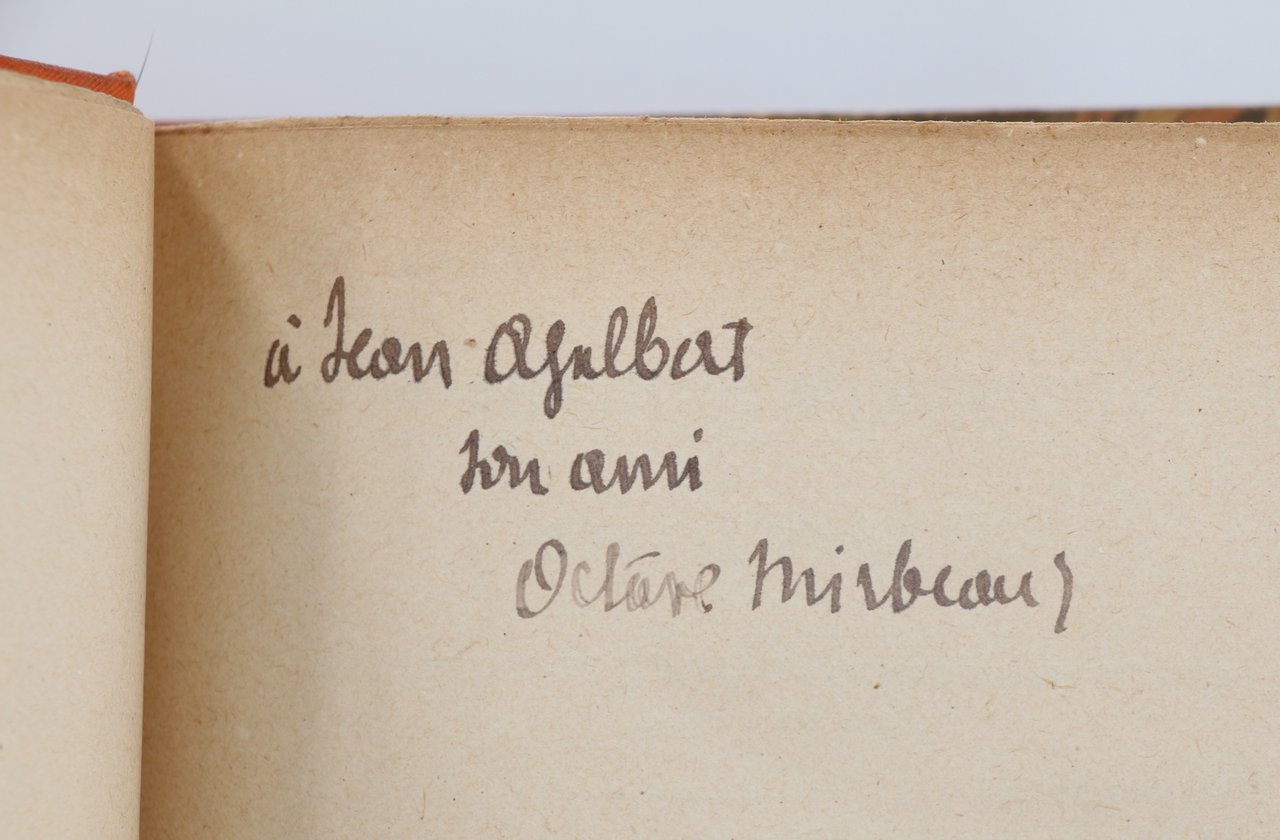 à Jean Ajalbert
son ami
Octave Mirbeau